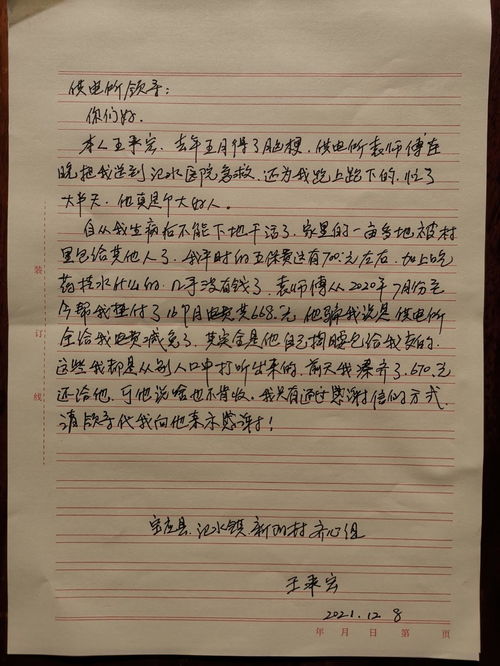 供电所领导：
你们好。
本人王来宏，去年五月得了脑梗，供电所袁师傅在
晚把我送到氾水医院急救，还为我跑上跑下的，忙了
大半天，他真是个大好人。
自从我生病后不能下地干活了，家里的一亩多地被村
里包给其他人了，我平时的五保费这有700元左右，加上吃
药挂水什么的，几乎没有钱了，袁师傅从2020年7月份至
今帮我垫付了16个月电费共668元，他骗我说是供电所
全给我电费减免了，其实全是他自己掏腰包给我交的，
这些我都是从别人口中打听出来的，前天我凑齐了670元
还给他，可他说啥也不肯收，我只有通过感谢信的方式，
请领导代我向他表示感谢！
装
订
线
宝应县氾水镇新 村齐心组
王来宏
2021.12.8
年 月 日 第 页